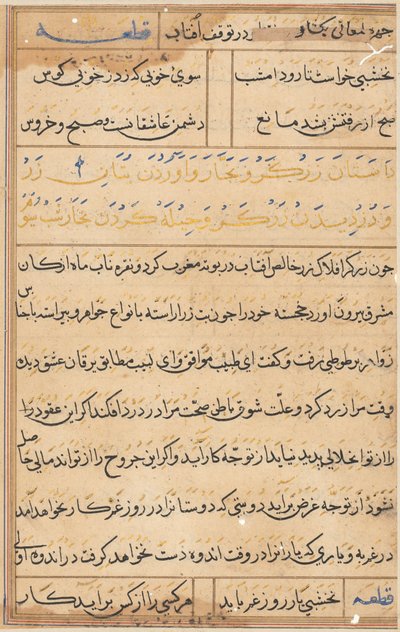 چهره معانی بکشاد در توقف آفتاب قطعه
نخشبی خواست تا رود امشب سوی خوبی که زد ز خوبی کوس
صبح از رفتنش بشد مانع دشمن عاشقانست صبح و خروس
داستان زرگر و نجار و آوردن بتان زر
و دزدیدن زرگر و حیله کردن نجار
چون زرگر افلاک زر خالص آفتاب در بوته مغرب کرد و نقره ناب ماه از کان
مشرق بیرون آورد خجسته خود را چون بت زر آراسته بانواع جواهر و پیراسته باجناس
زواهر بر طوطی رفت و گفت ای طبیب موافق و ای لبیب مطابق یرقان عشق دیک
وقت مرا زرد کرد و علت شوق باطن صحت مرا در درد افکند اگر این عقود را
را از تو انحلالی پدید نیاید از تو چه کار آید و اگر این جروح را از تو اندمالی حاصل
نشود از تو چه غرض برآید دوستی که دوستانرا در روز غم کار نخواهد آمد
در غم به و یاری که یارانرا در وقت اندوه دست نخواهد گرفت در اندوه اولی
قطعه نخشبی یار روز غم باید هر کسی را از کس برآید کار